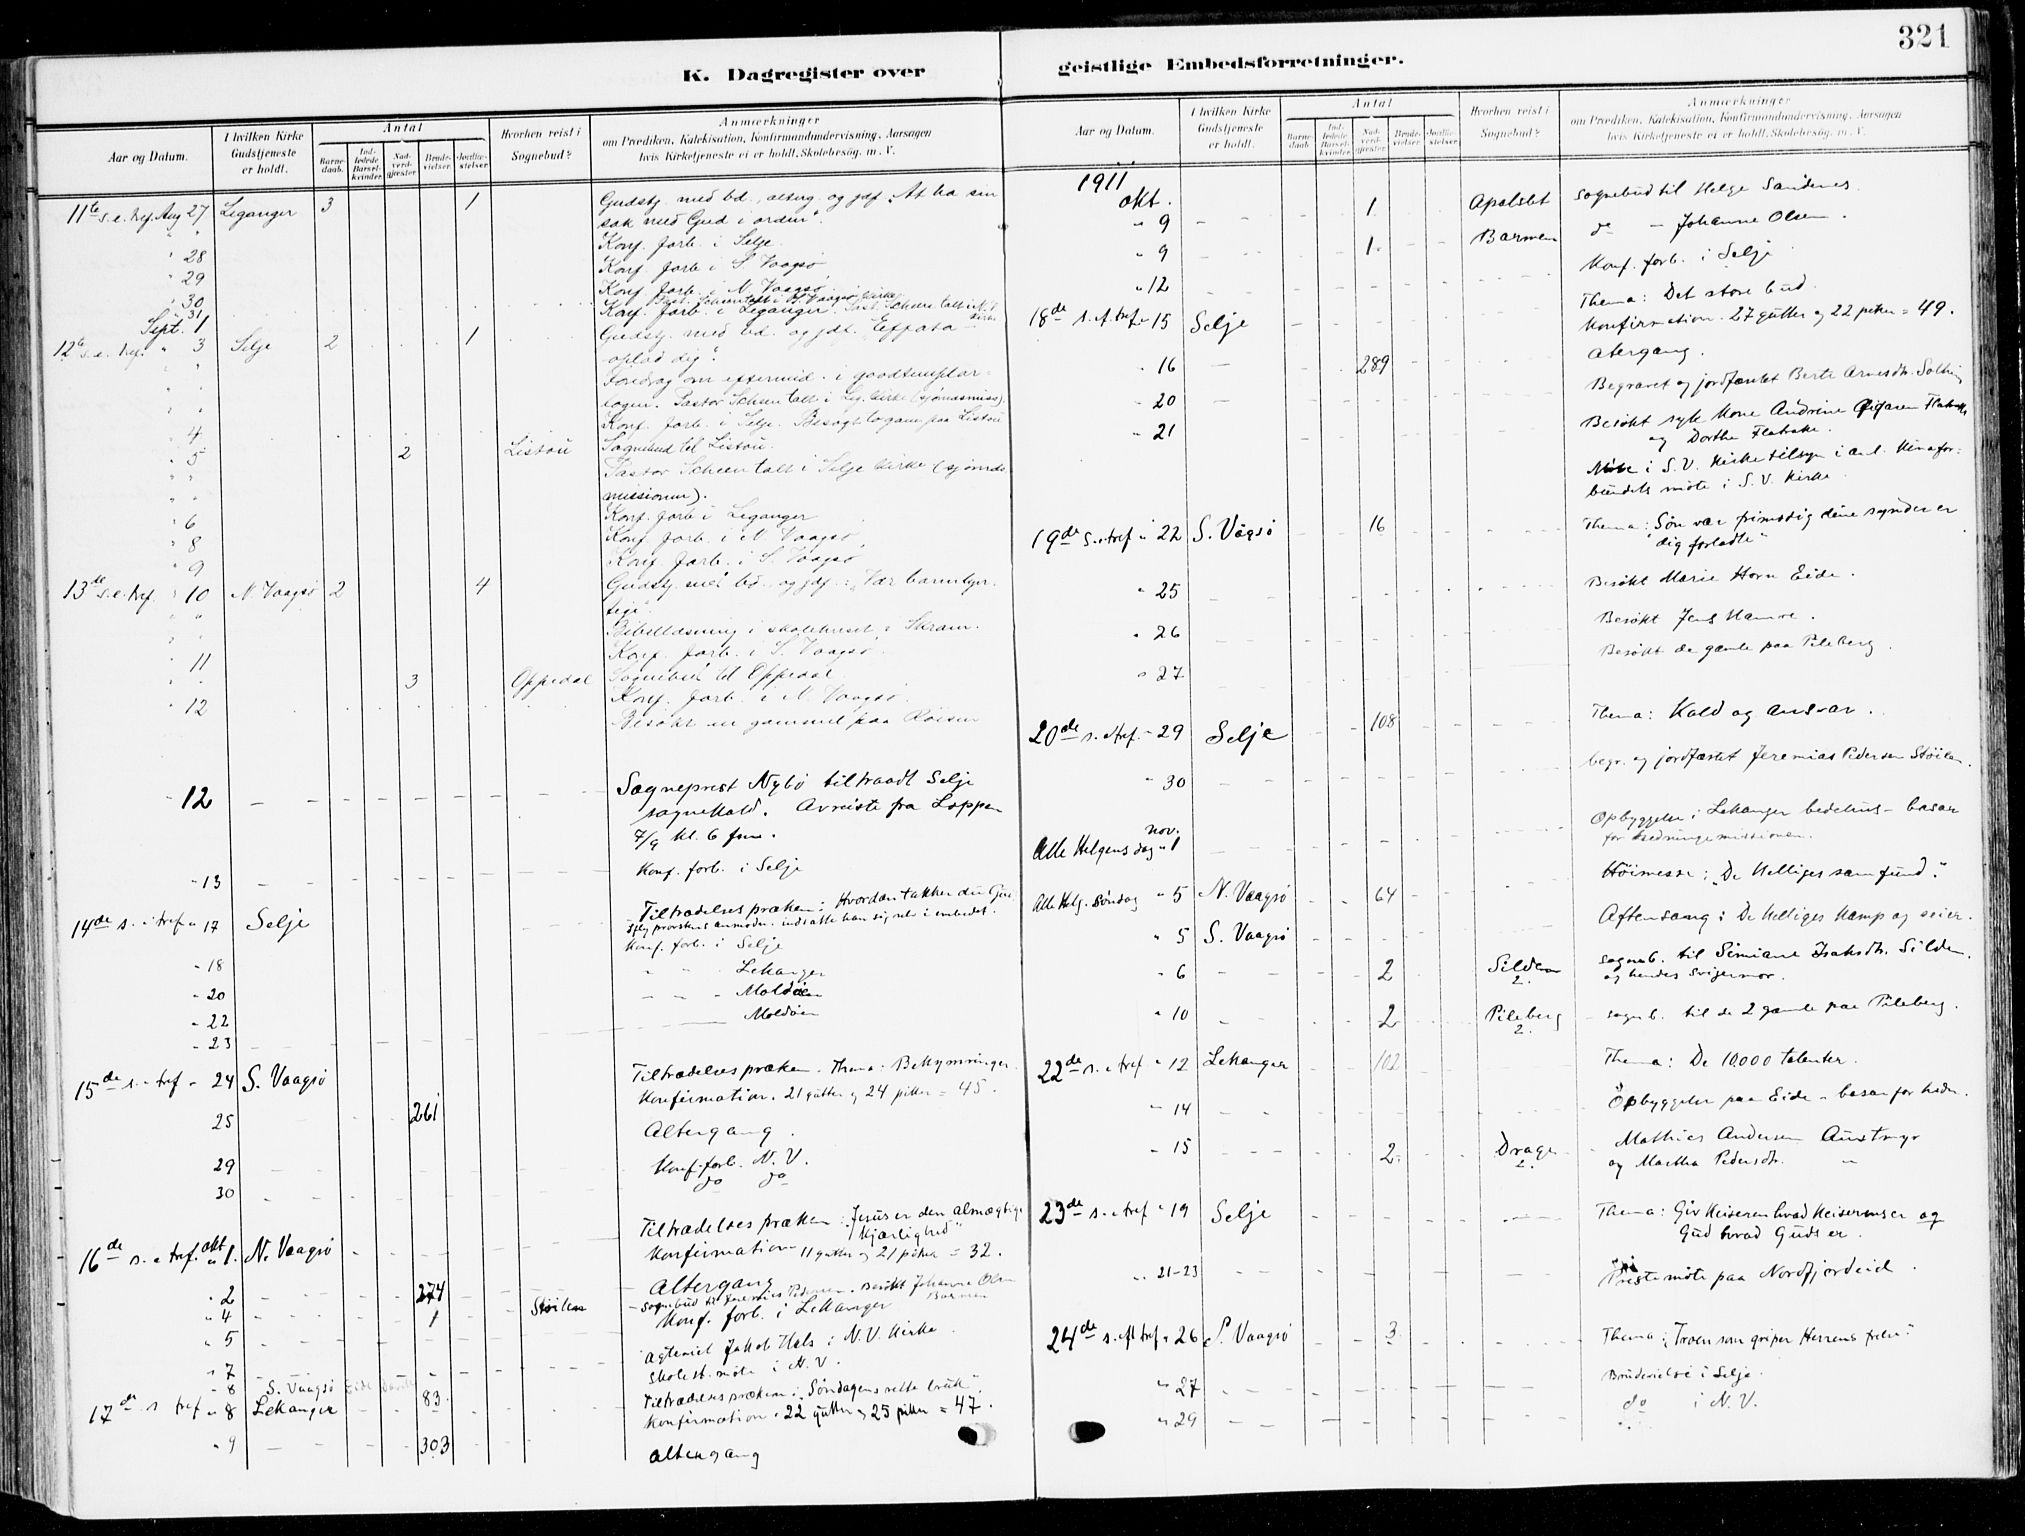 321
K. Dagregister over
Aar og Datum.
I hvilken Kirke Gudstjeneste er holdt.
Antal
Barnedaab.
Indledede Barselkvinder.
Nadverdgjæster
Brudevielser
Jordfæstelser
Hvorhen reist i Sognebud?
Anmærkninger
om Prædiken, Katekisation, Konfirmandundervisning, Aarsagen
hvis Kirketjeneste ei er holdt, Skolebesøg, m. V.
11te s.e.tref. Aug 27 Leganger 3 1 Gudstj. med bd., alterg. og jdf. "At ha sin
sak med Gud i orden".
Konf. forb. i Selje.
" 28 Konf. forb. i S. Vaagsø
" 29 Konf. forb. i N. Vaagsø.
" 30
" 31 Konf. forb. i Leganger.
Sept. 1
12te s.e. tref. " 3 Selje 2 1 Gudstj. med bd. og jdf. "Effata
oplad dig".
Foredrag om eftermid. i goodtemplar-
logen. Pastor Scheen talt i Leg. kirke (sjømdsmiss).
" 4 Konf. forb. i Selje. Besøgt logam paa Listou
" 5 2 Listou Sognebud til Listou.
Pastor Scheen talt i Selje kirke (sjømds
missionen).
" 6 Konf. forb. i Leganger
" 8 Konf. forb. i N. Vaagsø
" 9 Konf. forb. i S. Vaagsø
13de s.e. tref. " 10 N. Vaagsø 2 4 Gudstj. med bd. og jdf.: "Vær barmhjer-
tige".
Bibellæsning i skolehuset i Skram.
" 11 Konf. forb. i S. Vaagsø.
3 Oppedal Sognebud til Oppedal
" 12 Konf. forb. i N. Vaagsø.
Besøkt en gammel paa Røisen
" 12 Sogneprest Nybø tiltraadt Selje
sognekald. Avreiste fra Loppen
7/9 kl. 6 fm.
" 13 Konf. forb. i Selje
14de s. e tref. " 17 Selje Tiltrædelsespræken: Hvordan takker du Gud
Iflg provstens anmodn. indsatte han sig selv i embedet.
" 18 Konf. forb. i Selje
" 20 " " " Lekanger
" 22 " " " Moldøen
" 23 Moldøen
15de s. e tref " 24 S. Vaagsø Tiltrædelsespræken. Thema: Bekymringer.
Konfirmation. 21 gutter og 24 piker = 45.
25 261 Altergang.
29 Konf. forb. N. V.
30 do do
16de s. e tref. okt. 1. N. Vaagsø Tiltrædelsespræken: "Jesus er den almægtige
Kjærlighed"
Konfirmation 11 gutter og 21 piker = 32.
" 2 274 Altergang
" 4 1 Støilen Sognebud til Jeremias Pedersen. Besøkt Johanne Olsen Barmen
" 5 Konf. forb. i Lekanger
" 7 Jakob Hals i N.V. Kirke
" 8 S. Vaagsø Skolest. møte i N.V.
17de s tref " 8 Lekanger 83 Tiltrædelsespræken: "Søndagens rette bruk".
Konfirmation. 22 gutter og 25 piker = 47.
" 9 303 altergang
geistlige Embedsforretninger.
Aar og Datum.
I hvilken Kirke Gudstjeneste er holdt.
Antal
Barnedaab
Indledede Barselkvinder.
Nadverdgjæster
Brudevielser
Jordfæstelser
Hvorhen reist i Sognebud?
Anmærkninger
om Prædiken, Katekisation, Konfirmandundervisning, Aarsagen
hvis Kirketjeneste ei er holdt, Skolebesøg, m. V.
1911
okt.
" 9 1 Apalset Sognebud til Helge Sandenes
" 9 1 Barmen do - Johanne Olsen.
" 12 Konf. forb. i Selje
18de s. e. tref. " 15 Selje Thema: Det store bud.
Konfirmation. 27 gutter og 22 piker = 49.
" 16 289 Altergang.
" 20 Begravet og jordfæstet Berte Arnesdtr.
" 21 Besøkt syke kone Andrine
og Dorthe Flatrake.
Møte i S. V. Kirketilsyn i anl. Kinafor-
bundets møte i S. V. Kirke.
19de s. e tref " 22 S. Vågsø 16 Thema: "Søn vær frimodig dine synder er
dig forladte"
" 25 Besøkt Marie Horn Eide.
" 26 Besøkt Jens Hamre.
" 27 Besøkt de gamle paa Pileberg.
20de s. e tref. " 29 Selje 108 Thema: Kald og ansvar.
" 30 begr. og jordfæstet Jeremias Pedersen Støilen.
nov. Opbyggelse i Lekanger bedehus - basar
for hedningemissionen.
Alle Helgens dag " 1
Alle Helg. Søndag " 5 N. Vaagsø 64 Høimesse: "De Helliges samfund".
" 5 S. Vaagsø Aftensang: De helliges kamp og seier.
" 6 2 Silden 2. sogneb. til Simiane Isaksdtr. Silden.
og hendes svigermor.
" 10 2 Pileberg 2. sogneb. til de 2 gamle paa Pileberg.
22de s. e tref " 12 Lekanger 102 Thema: De 10.000 talenter.
" 14 Opbyggelse paa Eide - basar for hedn.
" 15 2. Drage 2. Mathies Andersen
og Martha Pedersdtr. "
23de s. e tref " 19 Selje Thema: Giv Keiseren hvad Keiserens er og
Gud hvad Guds er.
" 21-23 Prestemøte paa Nordfjordeid.
24de s. e tref " 26 S. Vaagsø 3 Thema: "Troen som griper Herrens
" 27 Brudevielse i Selje.
" 29 do i N. V.